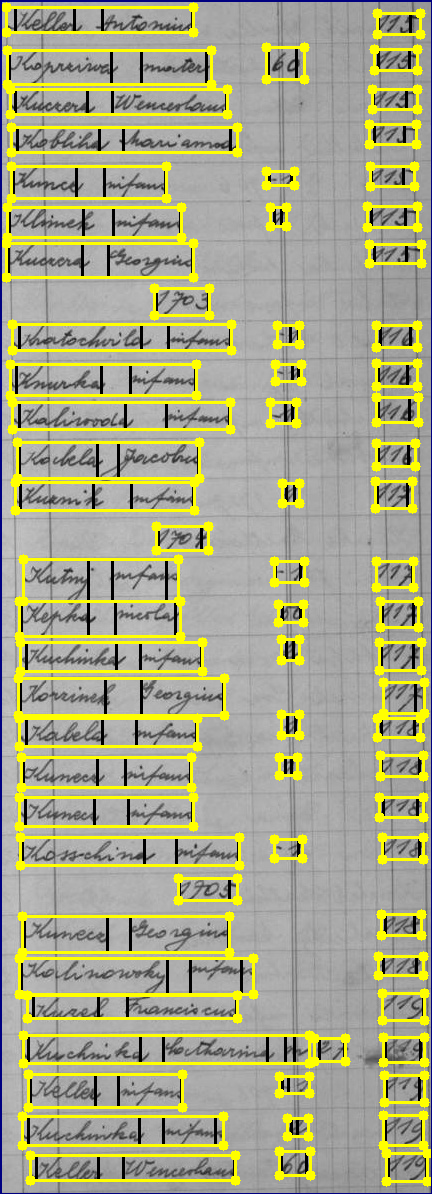 Keller Antonius 115
Koprziwa mater 60 115
Kuczera Wenceslaus 115
Kobliha Marianna 115
Kuncz infans 115
Klimek infans 115
Kuczera Georgius 115
1703
Kratochvila infans 116
Knurka infans 116
Kaliwoda infans 116
Kabela Jacobus 116
Kuzmik infans 117
1704
Kutny infans -1 117
Kepka nicola 60 117
Kuchinka infans 117
Korzinek Georgius 117
Kabela infans 118
Kunecz infans 118
Kunecz infans 118
Kosschina infans 118
1705
Kunecz Georgius 118
Kalinowsky infans 118
Kuzel Franciscus 119
Kuchinka Catharina 119
Keller infans 119
Kuchinka infans 119
Keller Wenceslaus 60 119